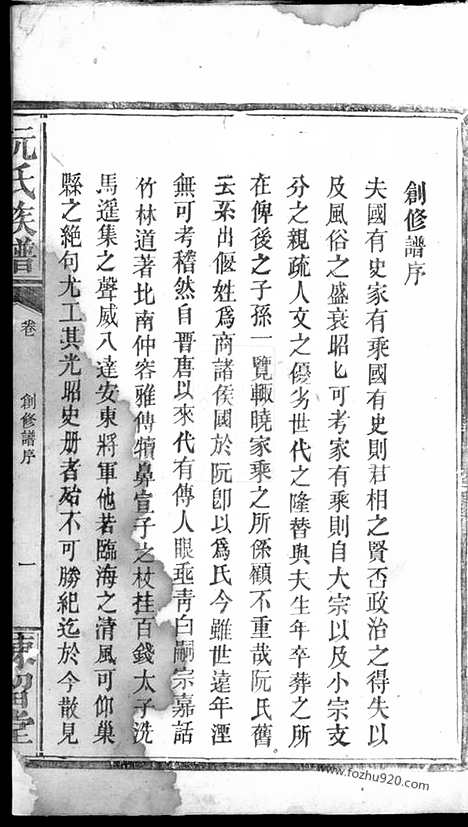 創修譜序
夫國有史家有乘國有史則君相之賢否政治之得失以
及風俗之盛衰昭匕可考家有乘則自大宗以及小宗支
分之親疏人文之優劣世代之隆替與夫生年卒葬之所
在俾後之子孫一覽輙曉家乘之所係顧不重哉阮氏舊
云系出偃姓爲商諸侯國於阮卽以爲氏今雖世遠年湮
無可考稽然自晋唐以來代有傳人眼垂靑白嗣宗嘉話
竹林道著比南仲容雅傳犢鼻宣子之杖挂百錢太子洗
馬遥集之聲威八達安東將軍他若臨海之清風可仰巢
縣之絶句尤工其光昭史册者殆不可勝紀迄於今散見
阮氏族譜
卷
創修譜序
一
陳留堂
www.fozhu920.com